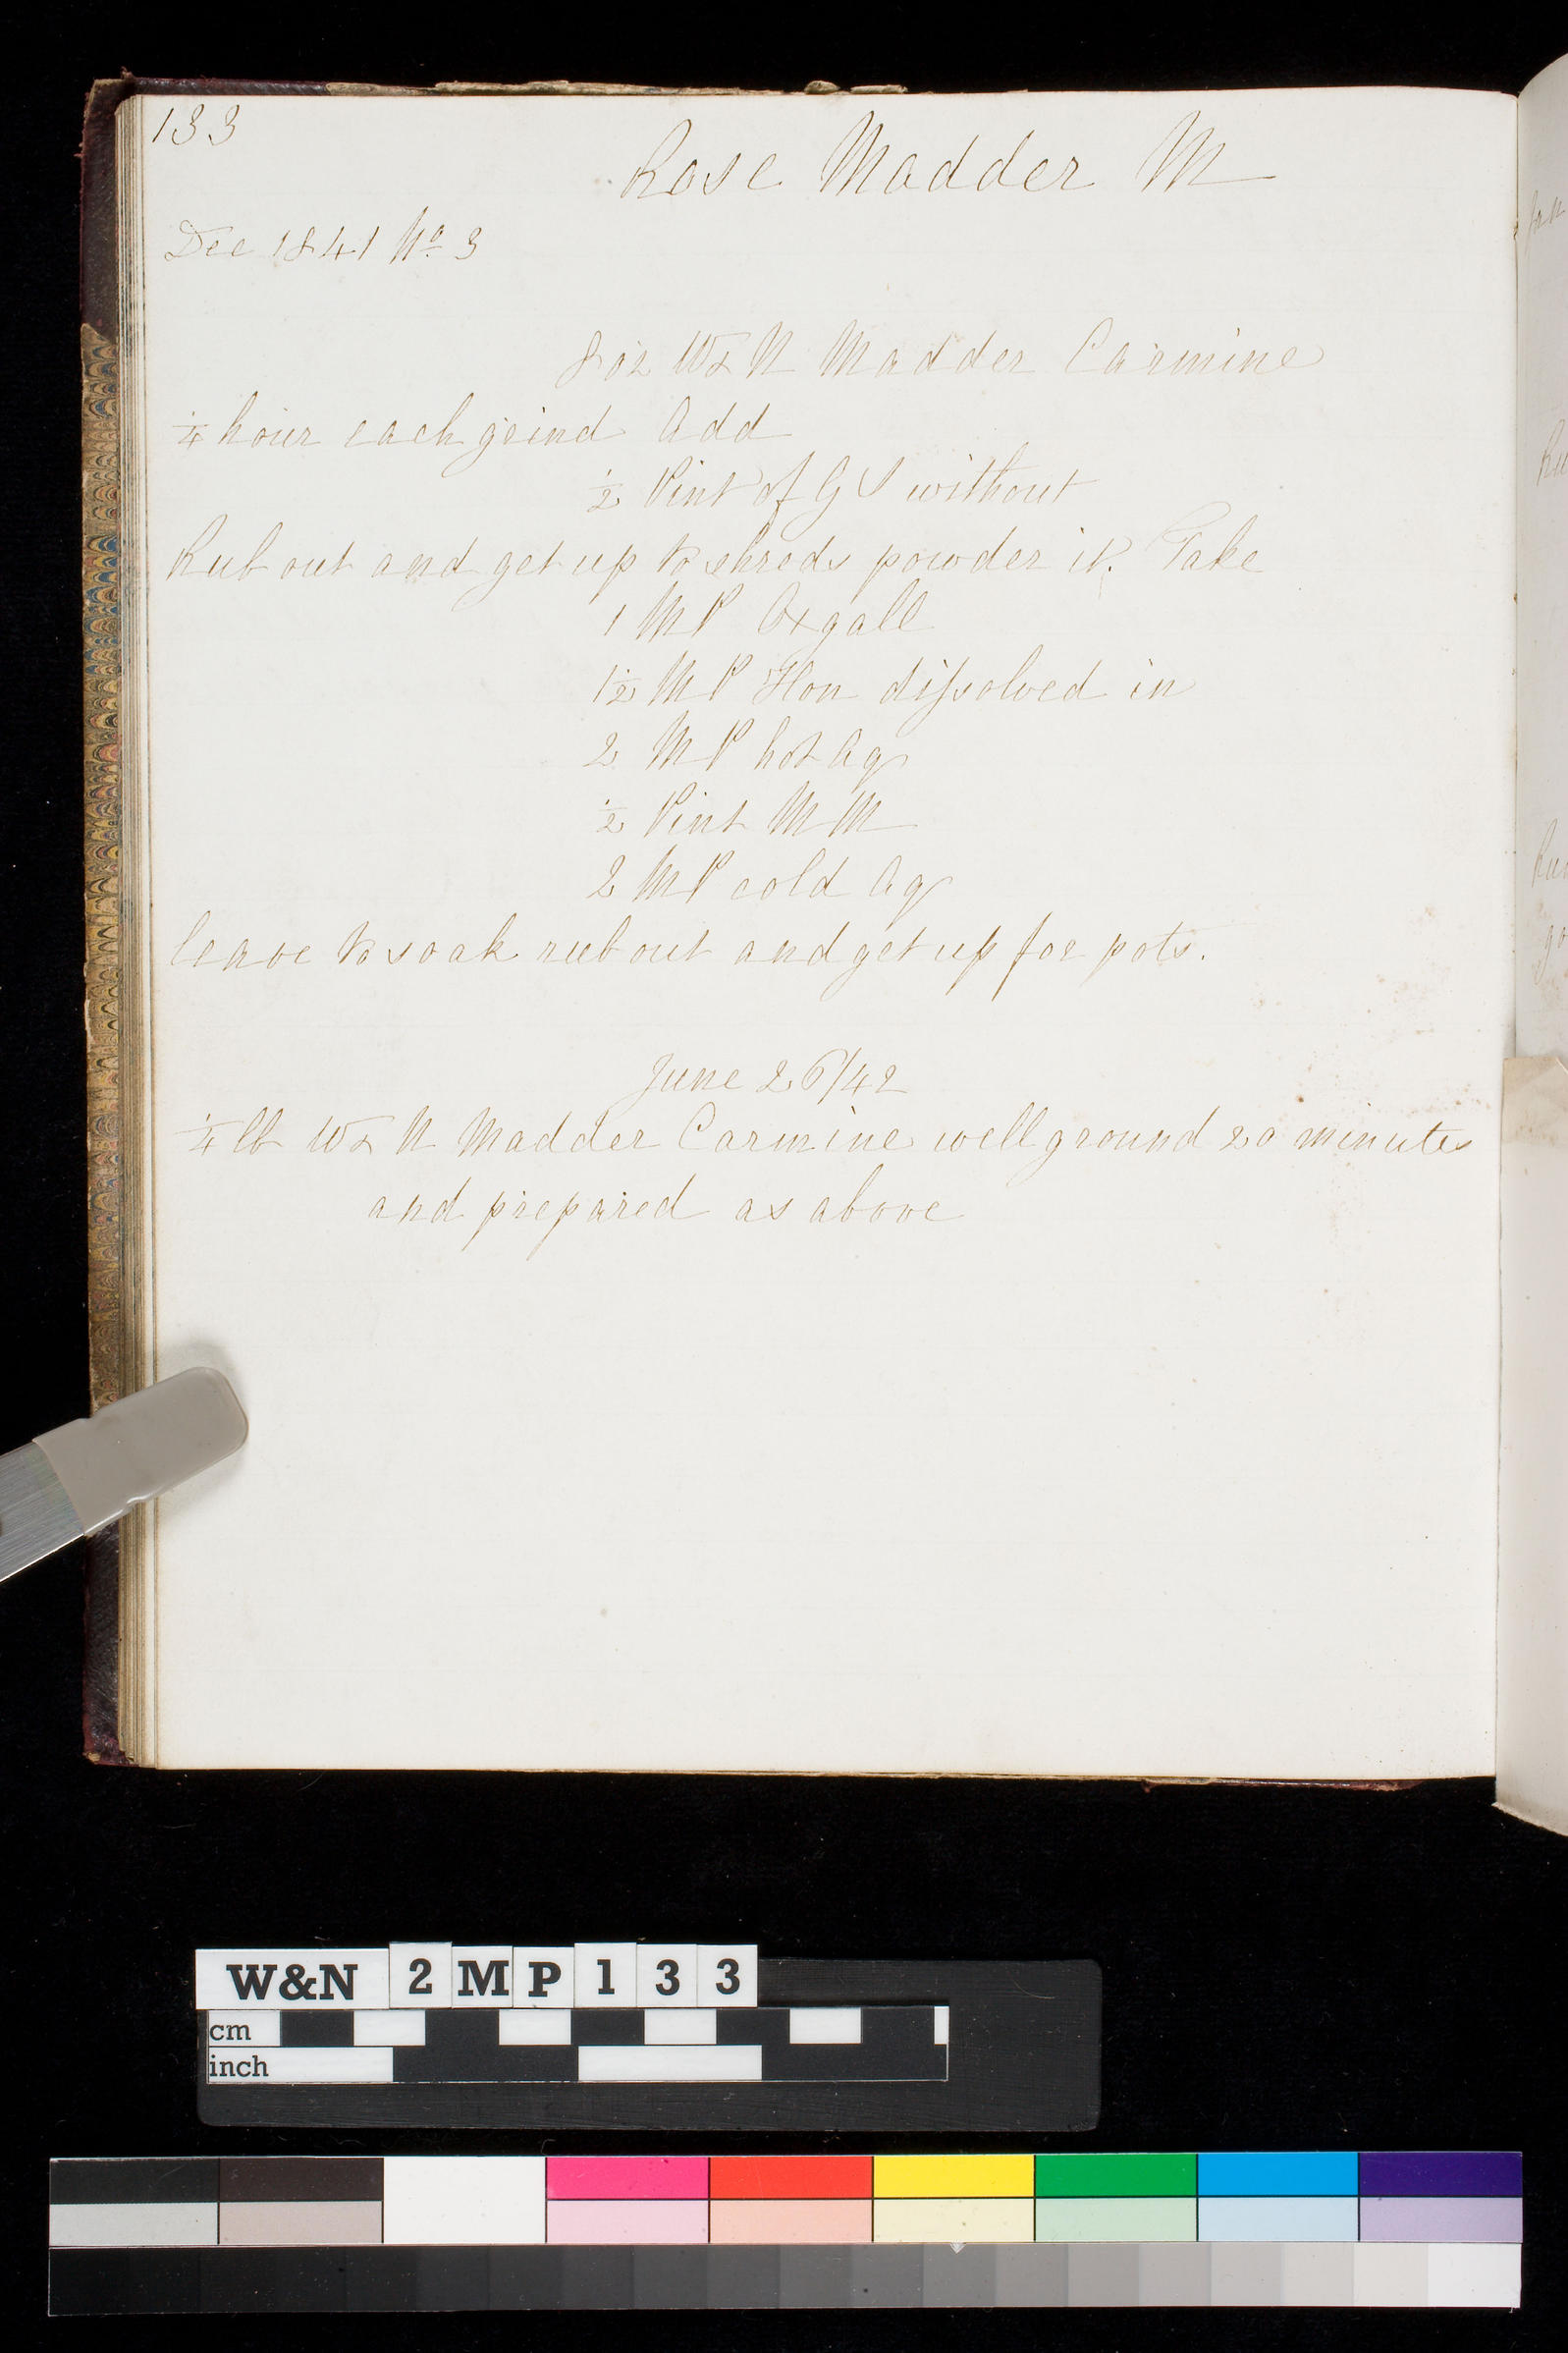 133
Rose Madder M
Dec 1841 No 3
8 oz W & N Madder Carmine
¼ hour each grind Add
½ Pint of G S without
Rub out and get up to shreds powder it. Take
1 M P Oxgall
1½ M P Hon dissolved in
2 M P hot Aq
½ Pint M M
2 M P cold Aq
leave to soak rub out and get up for pots.
June 26/42
¼ lb W & N Madder Carmine well ground 20 minutes
and prepared as above
W&N 2 M P 1 3 3
cm
inch